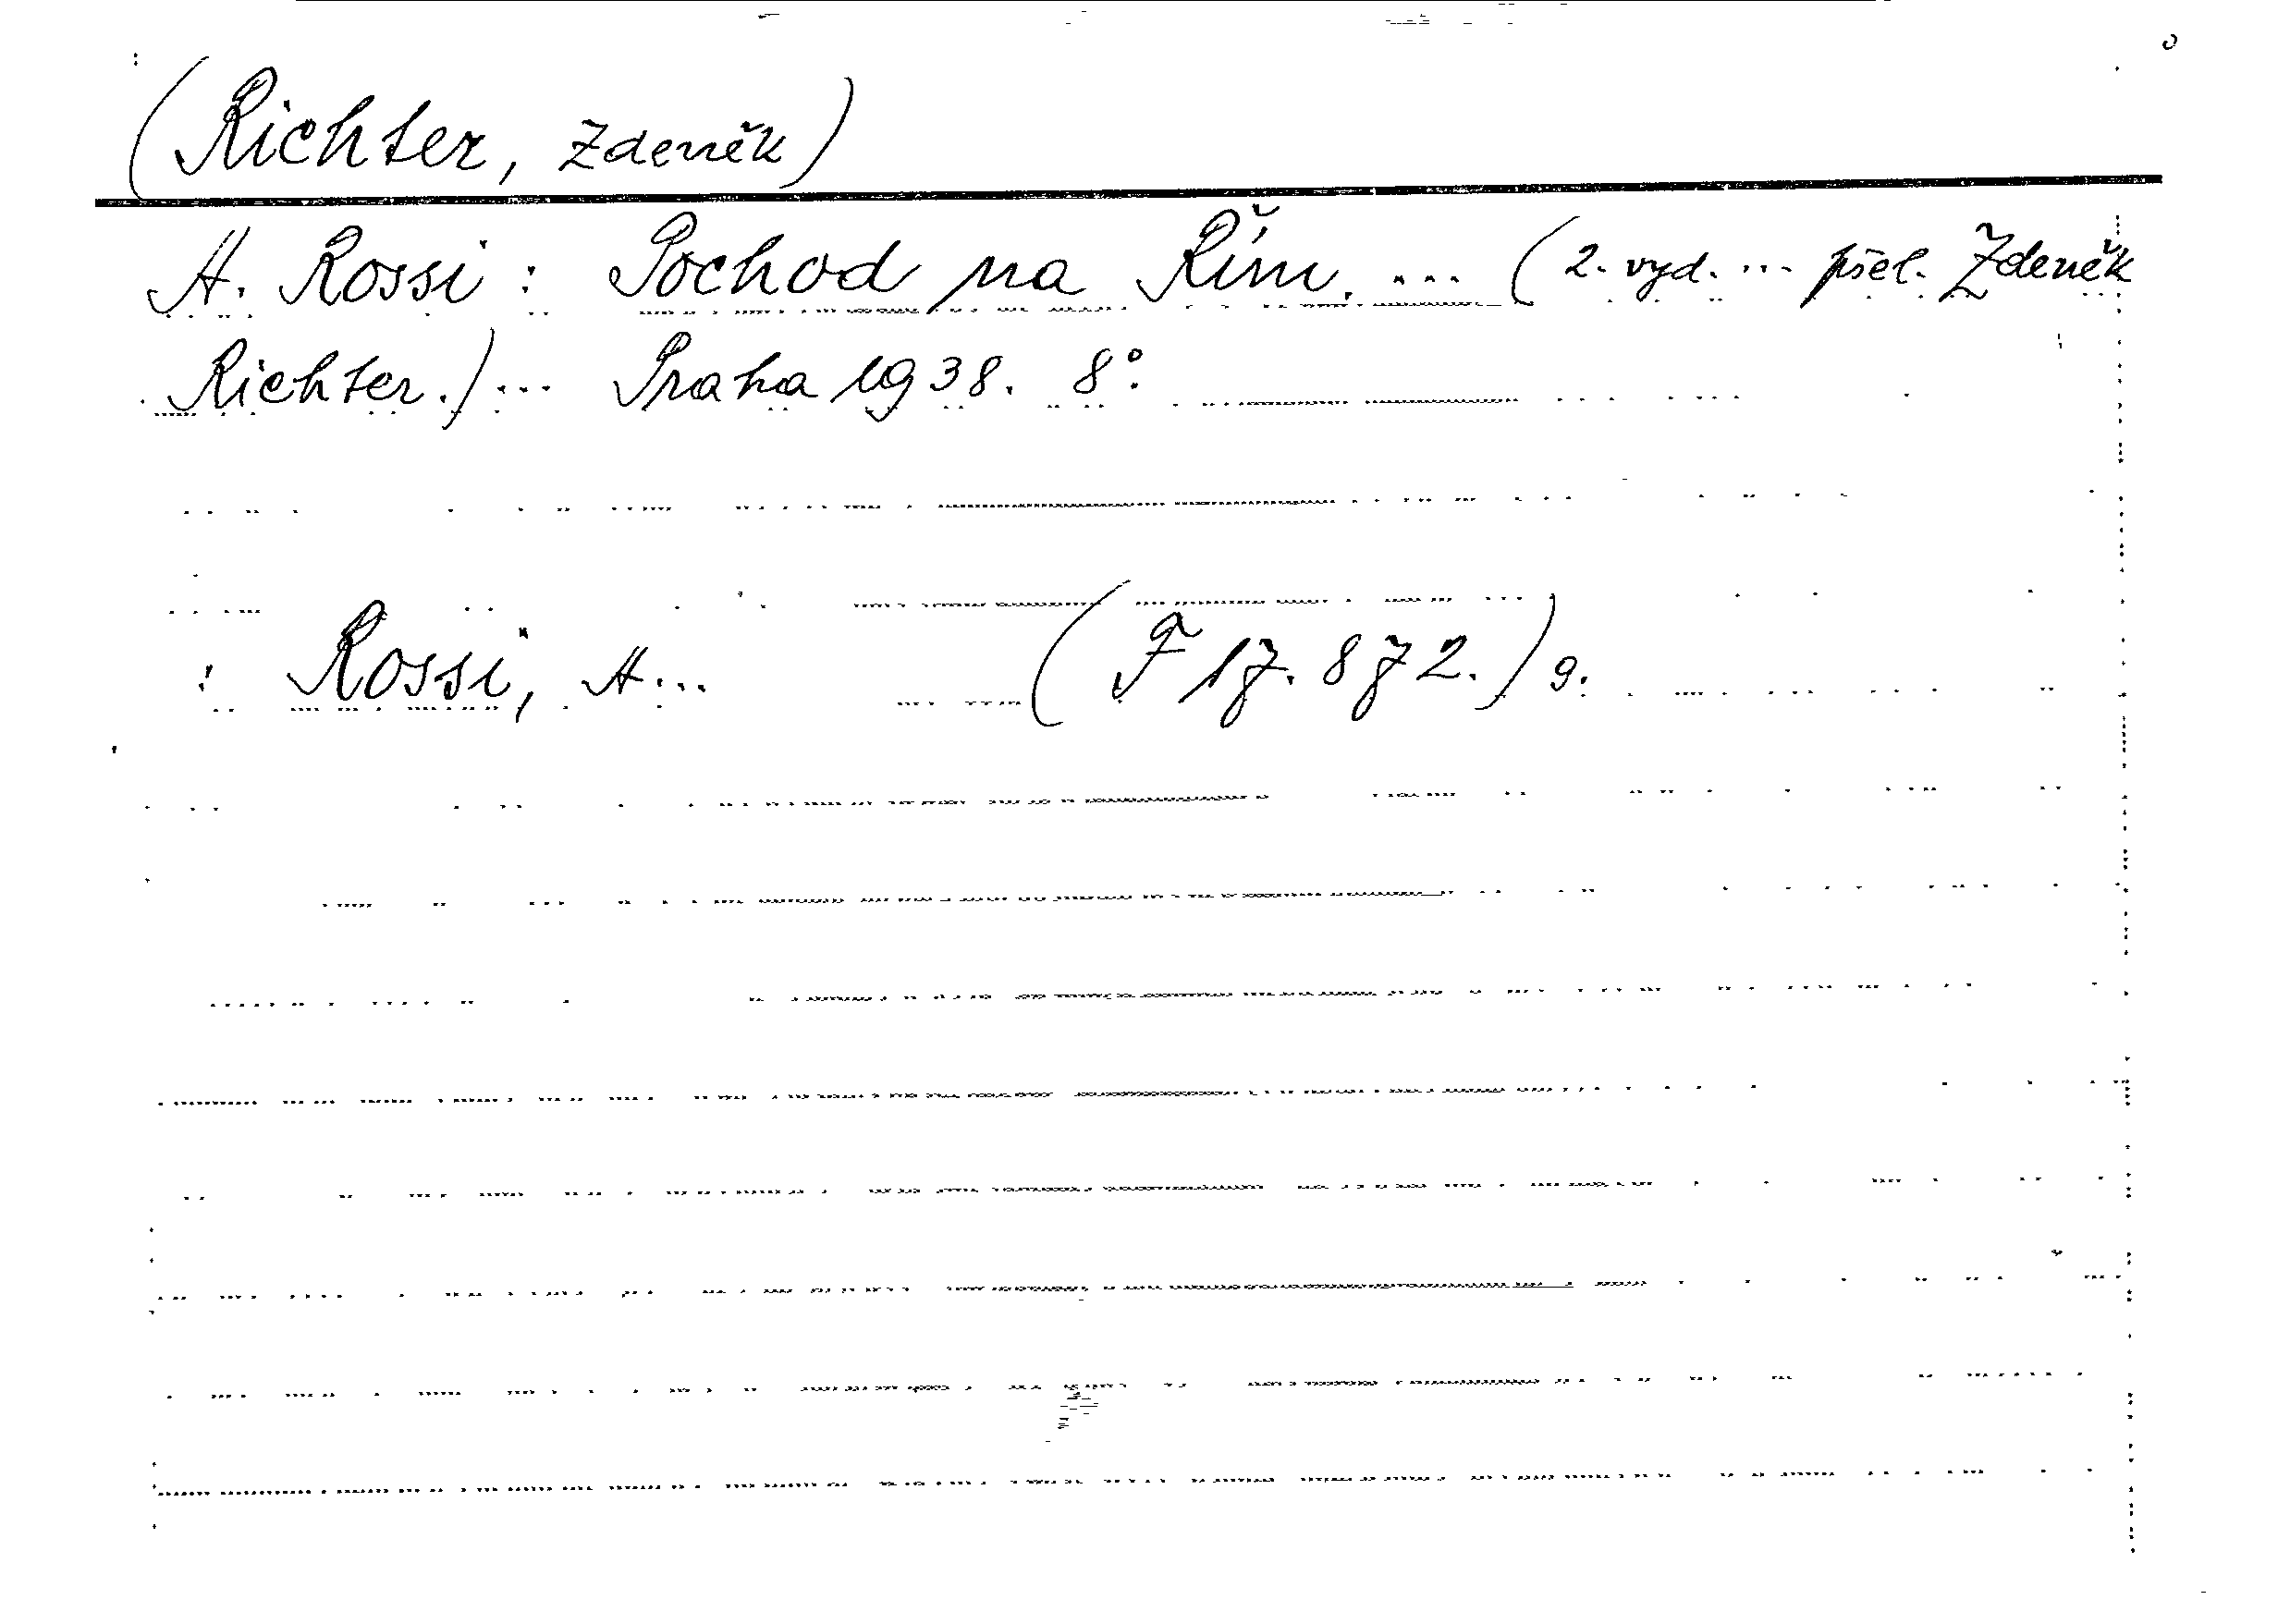 (Richter, Zdeněk)
A. Rossi: Pochod na Řím. ... (2. vyd. ... přel. Zdeněk
Richter.) ... Praha 1938. 8°.
: Rossi, A... (F 17.872.) 9.